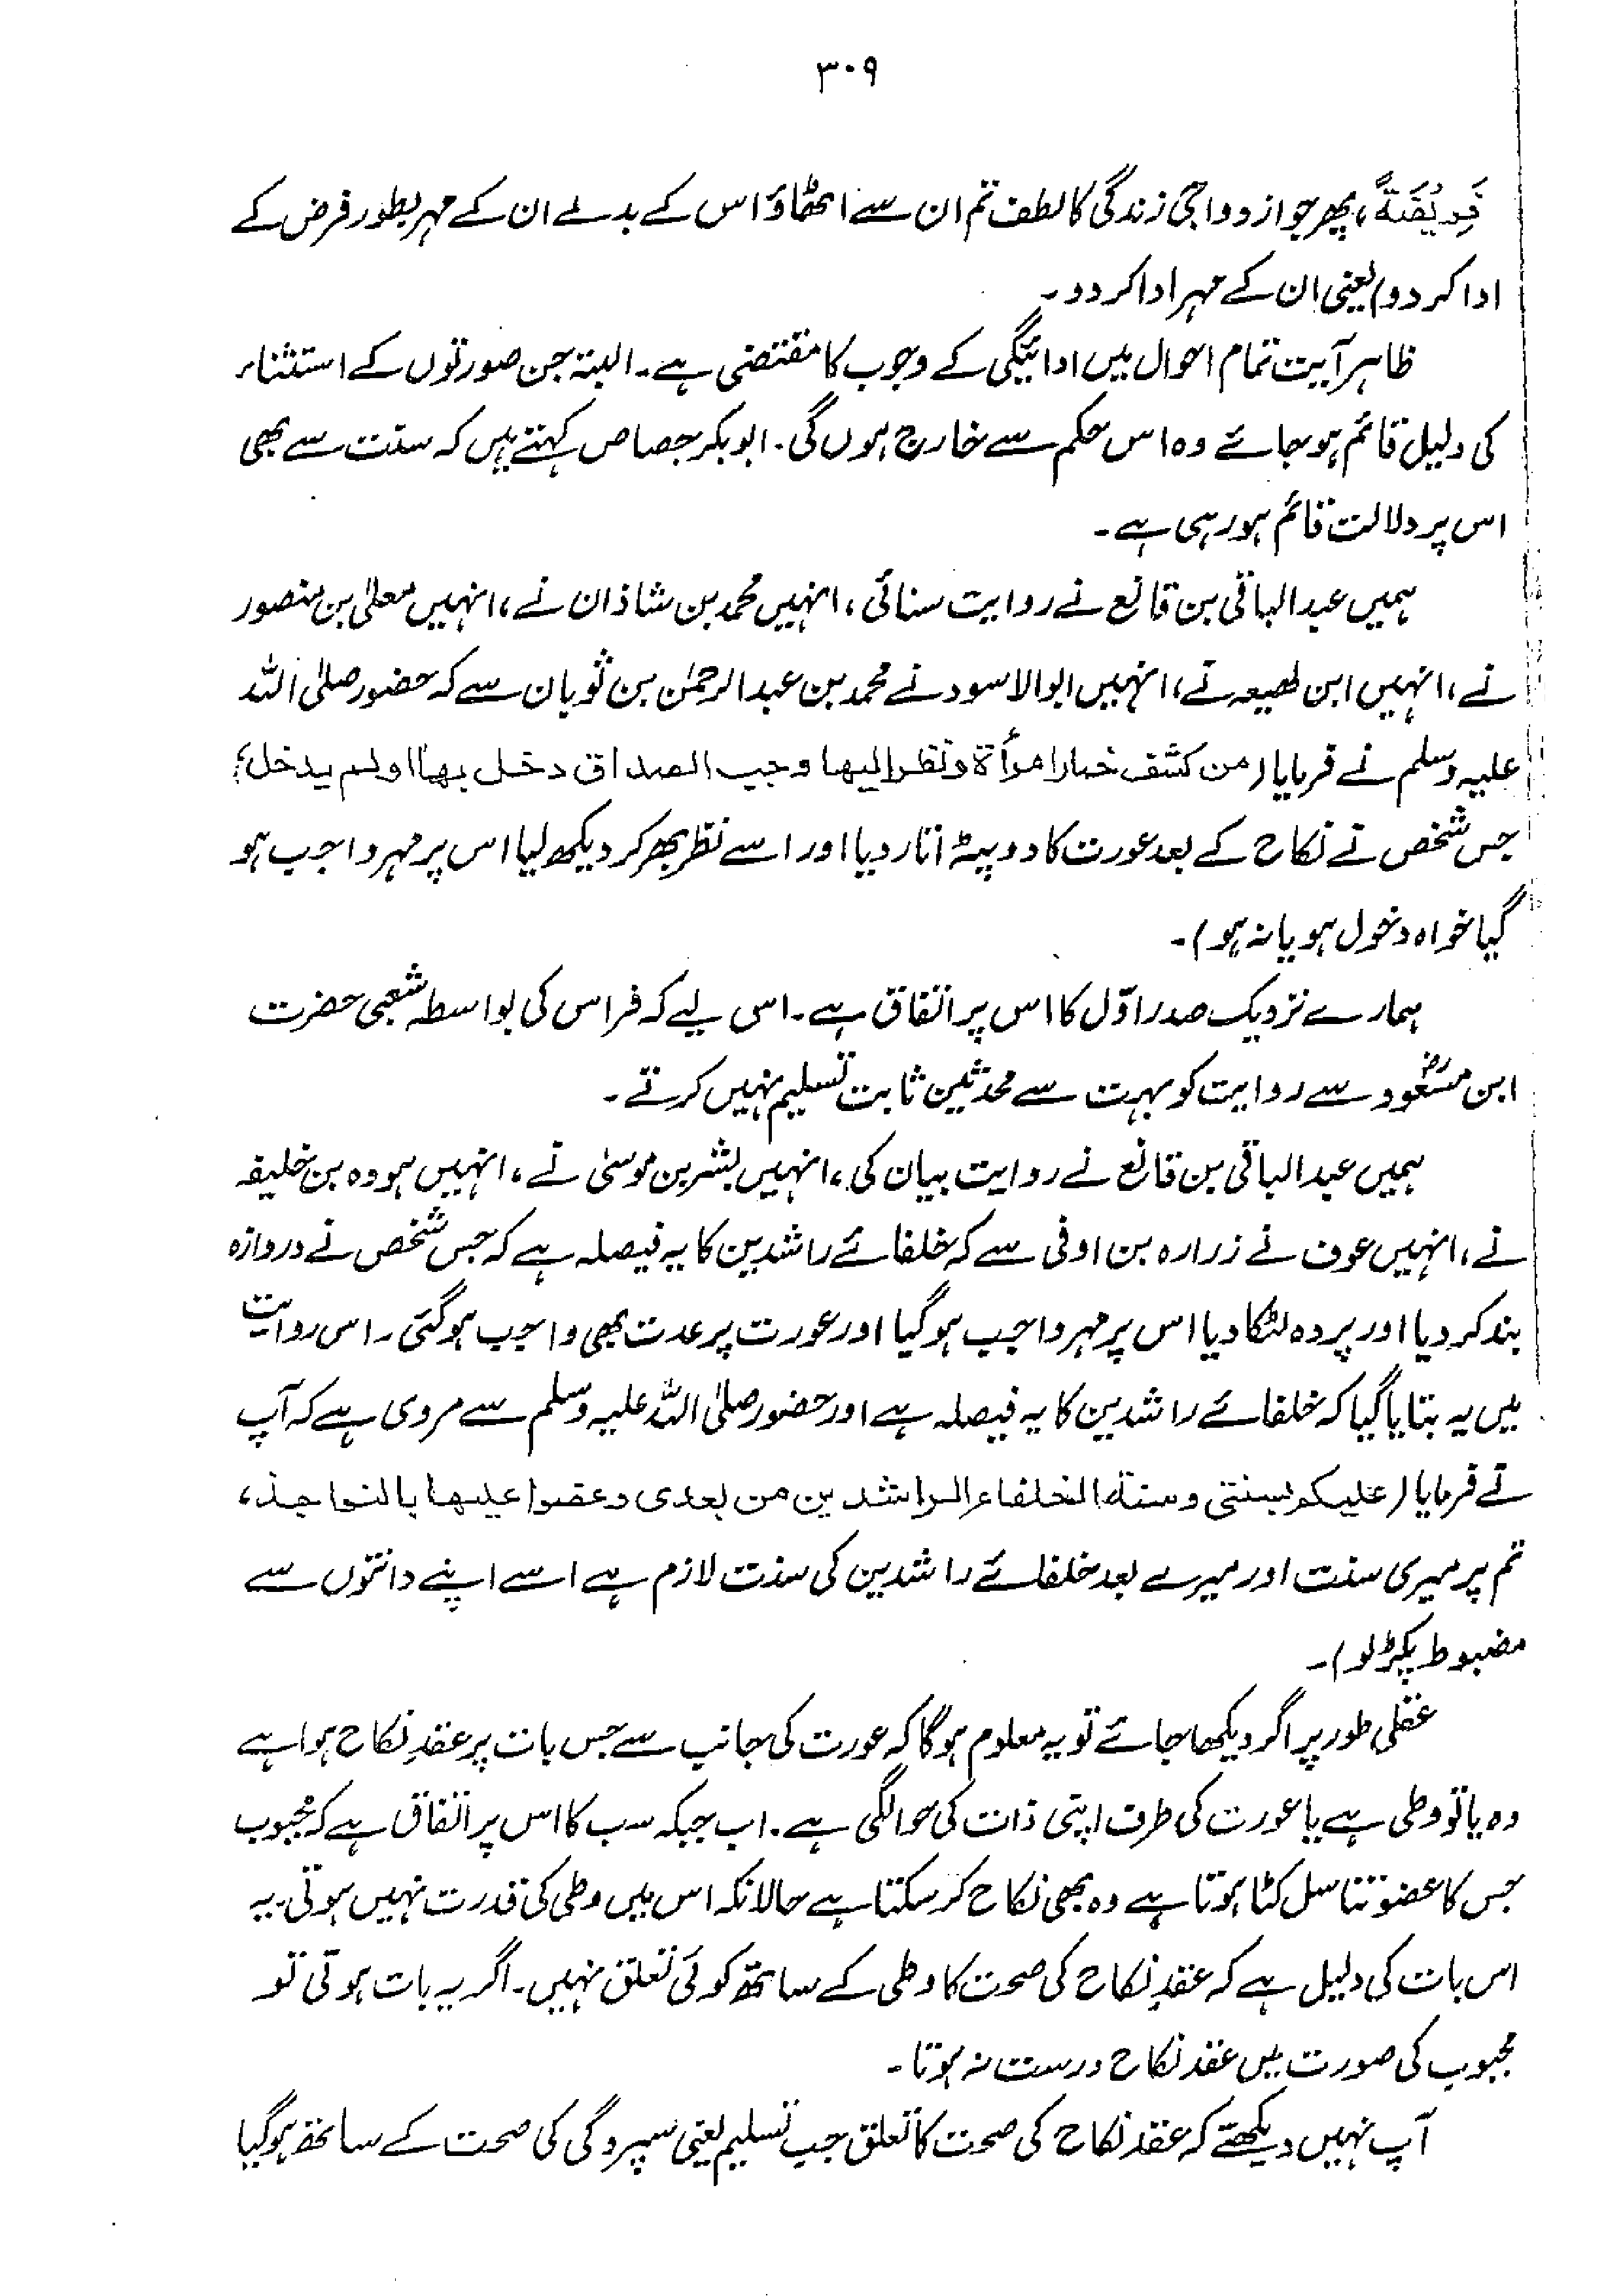 ۳۰۹
فَرِيْضَةً، پھر جو ازدواجی زندگی کا لطف تم ان سے اٹھاؤ اس کے بدلے ان کے مہر بطور فرض کے
ادا کر دو) یعنی ان کے مہر ادا کر دو۔
ظاہر آیت تمام احوال میں ادائیگی کے وجوب کا مقتضی ہے۔ البتہ جن صورتوں کے استثناء
کی دلیل قائم ہو جائے وہ اس حکم سے خارج ہوں گی۔ ابوبکر جصاص کہتے ہیں کہ سنت سے بھی
اس پر دلالت قائم ہو رہی ہے۔
ہمیں عبدالباقی بن قانع نے روایت سنائی، انہیں محمد بن شاذان نے، انہیں معلیٰ بن منصور
نے، انہیں ابن لھیعہ نے، انہیں ابوالاسود نے محمد بن عبدالرحمٰن بن ثوبان سے کہ حضور صلی اللہ
علیہ وسلم نے فرمایا (من كشف خمار امرأة ونظر اليها وجب الصداق دخل بها او لم يدخل،
جس شخص نے نکاح کے بعد عورت کا دوپٹہ اتار دیا اور اسے نظر بھر کر دیکھ لیا اس پر مہر واجب ہو
گیا خواہ دخول ہو یا نہ ہو)۔
ہمارے نزدیک صدر اوّل کا اس پر اتفاق ہے۔ اس لیے کہ فراس کی بواسطہ شعبی حضرت
ابن مسعودؓ سے روایت کو بہت سے محدثین ثابت تسلیم نہیں کرتے۔
ہمیں عبدالباقی بن قانع نے روایت بیان کی، انہیں بشر بن موسیٰ نے، انہیں ہودہ بن خلیفہ
نے، انہیں عوف نے زرارہ بن اوفی سے کہ خلفائے راشدین کا یہ فیصلہ ہے کہ جس شخص نے دروازہ
بند کر دیا اور پردہ لٹکا دیا اس پر مہر واجب ہو گیا اور عورت پر عدت بھی واجب ہو گئی۔ اس روایت
میں یہ بتایا گیا کہ خلفائے راشدین کا یہ فیصلہ ہے اور حضور صلی اللہ علیہ وسلم سے مروی ہے کہ آپ
نے فرمایا (عليكم بسنتي وسنة الخلفاء الراشدين من بعدي وعضوا عليها بالنواجذ،
تم پر میری سنت اور میرے بعد خلفائے راشدین کی سنت لازم ہے اسے اپنے دانتوں سے
مضبوط پکڑ لو)۔
عقلی طور پر اگر دیکھا جائے تو یہ معلوم ہو گا کہ عورت کی جانب سے جس بات پر عقدِ نکاح ہوا ہے
وہ یا تو وطی ہے یا عورت کی طرف اپنی ذات کی حوالگی ہے۔ اب جبکہ سب کا اس پر اتفاق ہے کہ مجبوب
جس کا عضو تناسل کٹا ہوتا ہے وہ بھی نکاح کر سکتا ہے حالانکہ اس میں وطی کی قدرت نہیں ہوتی۔ یہ
اس بات کی دلیل ہے کہ عقدِ نکاح کی صحت کا وطی کے ساتھ کوئی تعلق نہیں۔ اگر یہ بات ہوتی تو
مجبوب کی صورت میں عقد نکاح درست نہ ہوتا۔
آپ نہیں دیکھتے کہ عقد نکاح کی صحت کا تعلق جب تسلیم یعنی سپردگی کی صحت کے ساتھ ہو گیا